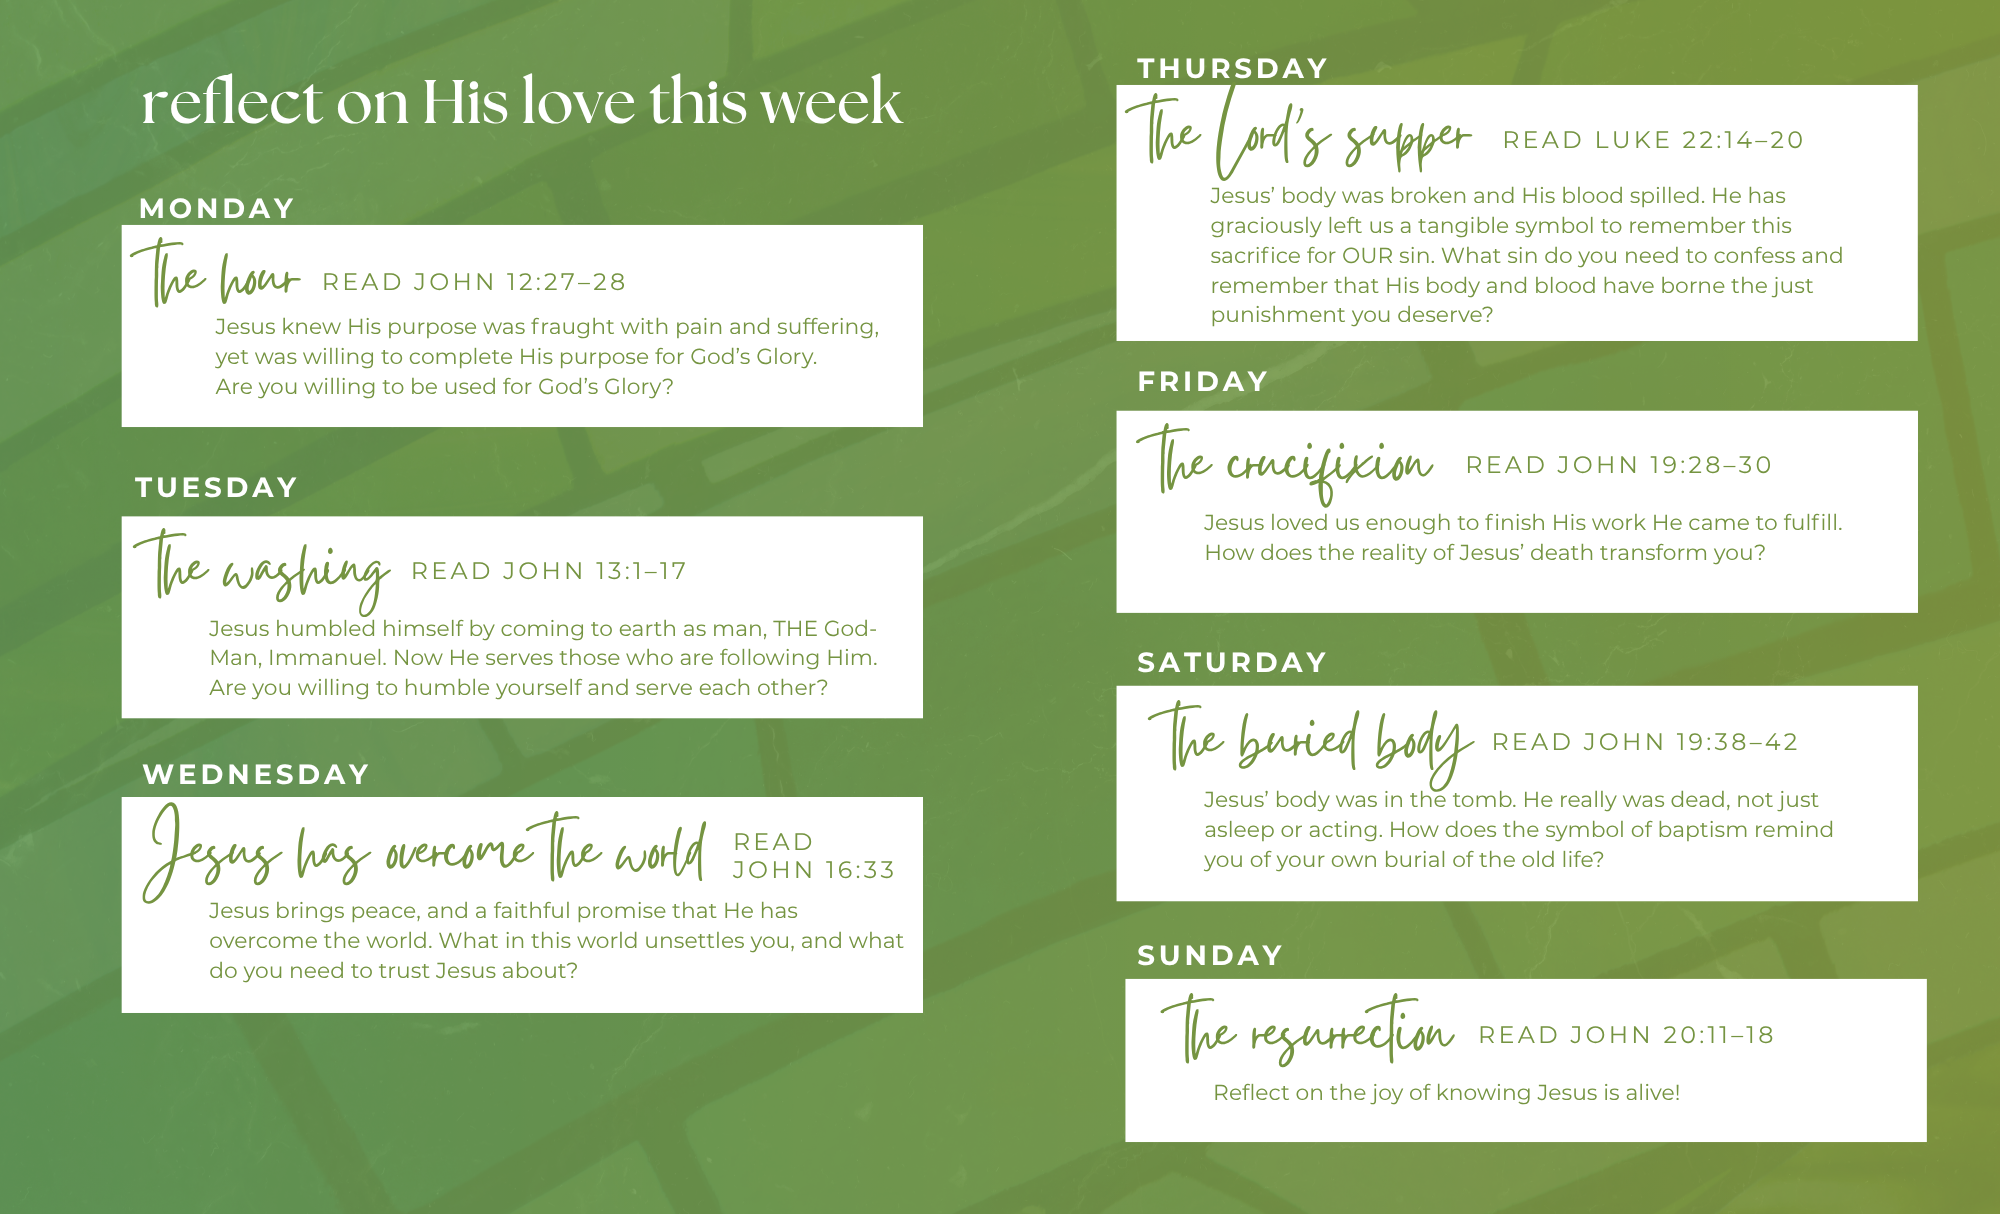 reflect on His love this week
MONDAY
The hour READ JOHN 12:27–28
Jesus knew His purpose was fraught with pain and suffering,
yet was willing to complete His purpose for God’s Glory.
Are you willing to be used for God’s Glory?
TUESDAY
The washing READ JOHN 13:1–17
Jesus humbled himself by coming to earth as man, THE God-
Man, Immanuel. Now He serves those who are following Him.
Are you willing to humble yourself and serve each other?
WEDNESDAY
Jesus has overcome the world READ
JOHN 16:33
Jesus brings peace, and a faithful promise that He has
overcome the world. What in this world unsettles you, and what
do you need to trust Jesus about?
THURSDAY
The Lord’s supper READ LUKE 22:14–20
Jesus’ body was broken and His blood spilled. He has
graciously left us a tangible symbol to remember this
sacrifice for OUR sin. What sin do you need to confess and
remember that His body and blood have borne the just
punishment you deserve?
FRIDAY
The crucifixion READ JOHN 19:28–30
Jesus loved us enough to finish His work He came to fulfill.
How does the reality of Jesus’ death transform you?
SATURDAY
The buried body READ JOHN 19:38–42
Jesus’ body was in the tomb. He really was dead, not just
asleep or acting. How does the symbol of baptism remind
you of your own burial of the old life?
SUNDAY
The resurrection READ JOHN 20:11–18
Reflect on the joy of knowing Jesus is alive!